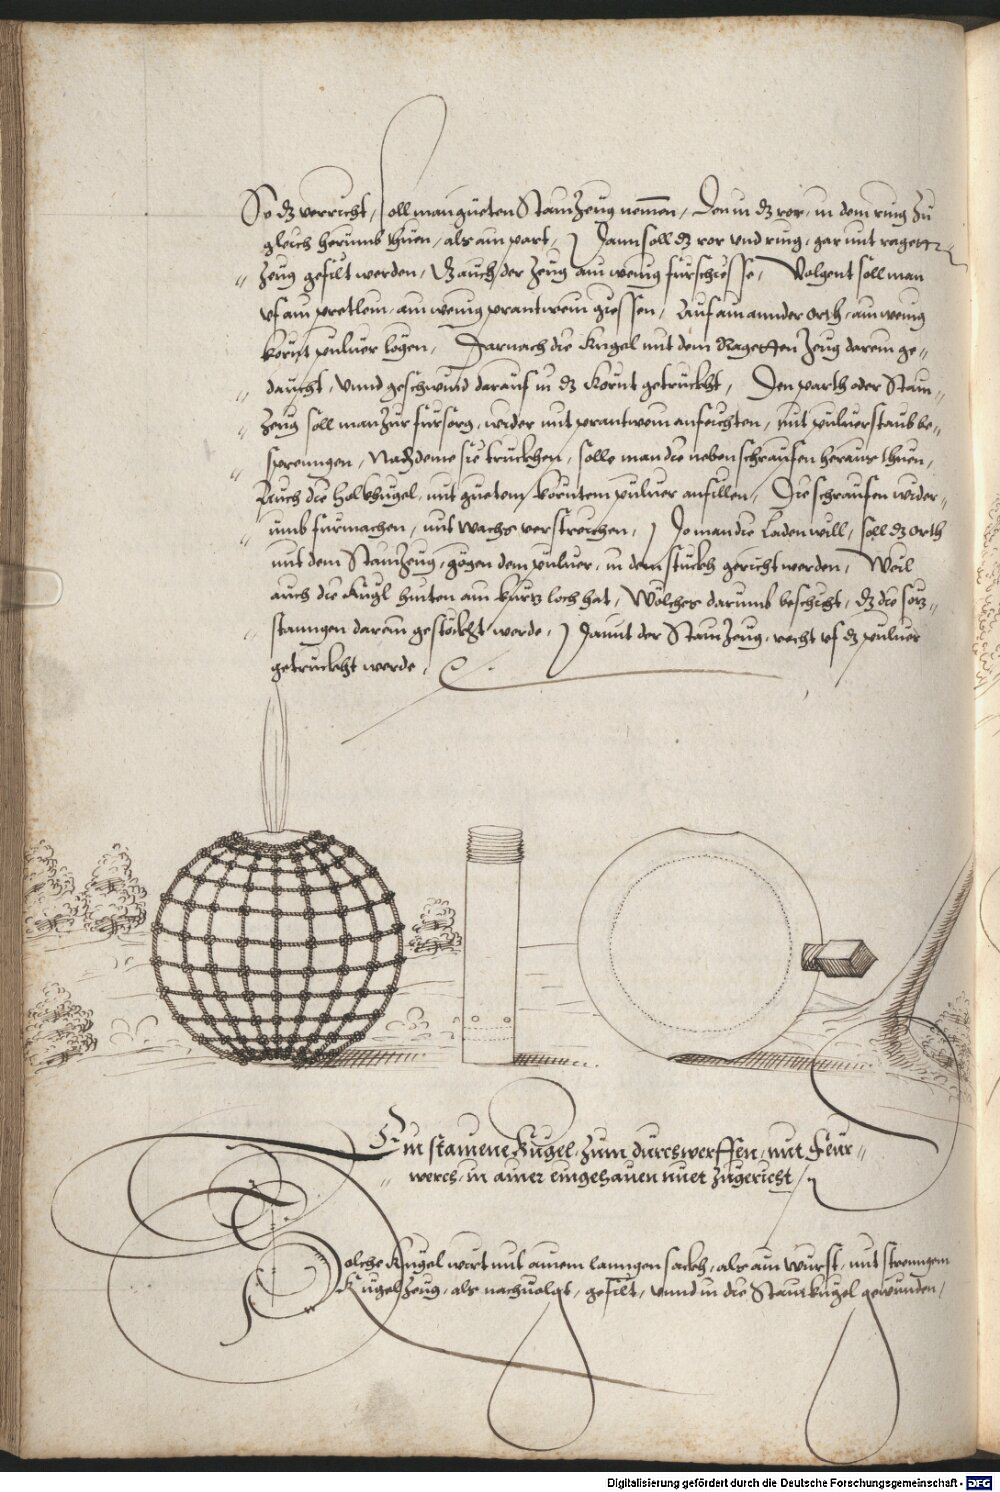 So dz verricht, soll man gueten Stainzeug nemmen, Den in dz ror, in dem ring zu
gleich herumb thuen, als ain part, Dann soll dz ror vnd ring, gar mit rageten
Zeug gefilt werden, dz auch der Zeug ain wenig fürschiesse, Volgent soll man
vf ain pretlein, ain wenig prantwein giessen, Auf ain annder orth, ain wenig
kornt puluer legen, Darnach die Kugel mit dem Ragetten Zeug darein ge„
daucht, vnnd geschwind darauf in dz Kornt getruckht, Den parth oder Stain„
Zeug soll man zur fürsorg, wider mit prantwein anfeichten, mit puluerstaub be„
sprenngen, Nachdeme sie truckhen, solle man die neben schraufen heraus thuen,
Auch die holkhugel, mit guetem, korntem puluer anfillen, Die schraufen wider„
umb fürmachen, mit wachs verstreichen, So man die Laden will, soll dz orth
mit dem Stainzeug, gögen dem puluer, in dem stuckh gericht werden, Weil
auch die Kugl hinten ain loch hat, Wölches darumb beschicht, dz die
stanngen darein gesteckht werde, Damit der Stainzeug, recht vf dz puluer
getruckht werde,
Ein stainene Kugel, zum durchwerffen, mit Feur„
werch, in ainer eingehauen nuet zugericht,
Solche Kugel wirt mit ainem lanngen sackh, als ain wurst, mit strenngem
Kugelzeug, als nachuolgt, gefilt, vnnd in die Stainkugel gewunden,
Digitalisierung gefördert durch die Deutsche Forschungsgemeinschaft - DFG